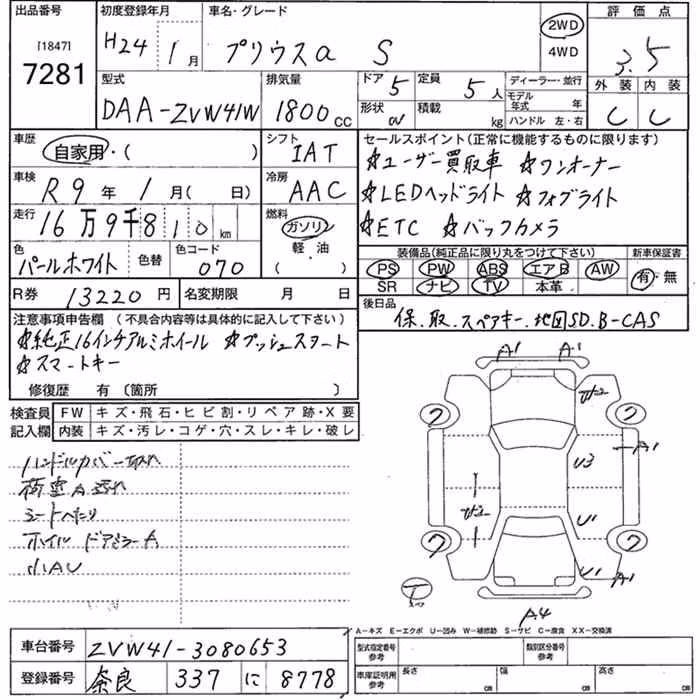 出品番号 初度登録年月 車名・グレード 評価点
[1847]
7281
H24年 1月 プリウスα S 2WD 4WD 3.5
型式 排気量 ドア 5 定員 5人 ディーラー・並行 外装 内装
DAA-ZVW41W 1800cc 形状 積載 kg モデル年式 年 ハンドル 左・右 C C
車歴 自家用・( ) シフト IAT セールスポイント(正常に機能するものに限ります)
☆ユーザー買取車 ☆ワンオーナー
車検 R9年1月( 日) 冷房 AAC ☆LEDヘッドライト ☆フォグライト
走行 16万9千810km 燃料 ガソリン 軽・油 ( ) ☆ETC ☆バックカメラ
色 パールホワイト 色替 色コード 070
装備品(純正品に限り丸をつけて下さい) 新車保証書
PS PW ABS エアB AW 有・無
SR ナビ TV 本革
R券 13220円 名変期限 月 日
後日品 保.取.スペアキー.地図SD.B-CAS
注意事項申告欄 (不具合内容等は具体的に記入して下さい)
☆純正16インチアルミホイール ☆プッシュスタート
☆スマートキー
修復歴 有(箇所 )
検査員記入欄 FW キズ・飛石・ヒビ割・リペア跡・X要
内装 キズ・汚レ・コゲ・穴・スレ・キレ・破レ
ハンドルカバー切れ
荷室A汚れ
シートへたり
ホイル ドアミラーA
小AU
A1 A1
7 7
A1
U3
U1
7 7
U1 A1
T スペア
A4
A-キズ E-エクボ U-凹み W-補修跡 S-サビ C-腐食 XX-交換済
車台番号 ZVW41-3080653
型式指定番号 参考 類別区分番号 参考
登録番号 奈良 337 に 8778
車庫証明用 参考 長さ cm 幅 cm 高さ cm